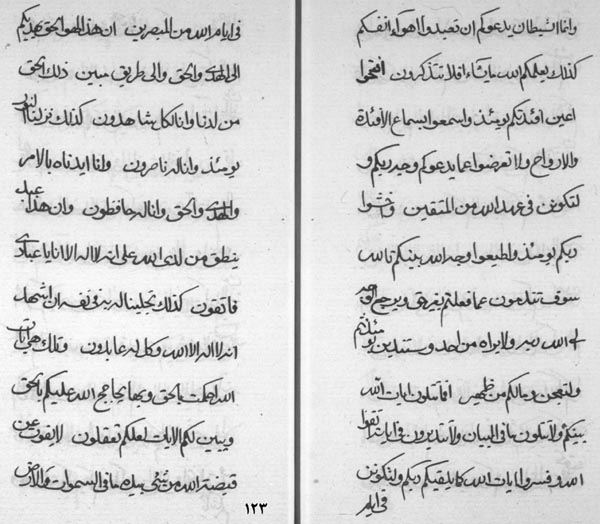 وانما الشيطان يدعوكم ان تعبدوا اهوآء انفسكم
كذلك يعلمكم الله ما يشآء افلا تتذكرون افتحوا
اعين افئدتكم يومئذ واسمعوا بسماع الأفئدة
والارواح ولا تعرضوا عما يدعوكم وحيد ربكم و
لتكونن فى عهد الله من المتقين واخشوا
ربكم يومئذ واطيعوا وجه الله بينكم تالله
سوف تندمون عما فعلتم
الى الله ولا يراه من احد
ولتفحن ومالكم من ظهير افآ تتلون ايات الله
بينكم ولا تتلون ما فى البيان ولا تتدبرون فى ايات اتقوا
الله وفسروا ايات الله كما يلقيكم ربكم ولتكونن
فى ايام
فى ايام الله من المبصرين ان هذا لهو الحق يهديكم
الى الهدى والحق والى طريق مبين ذلك الحق
من لدنا وانا لكل شاهدون كذلك نزلينا
يومئذ وانا له ناصرون وانا ايدناه بالامر
والهدى والحق وانا له حافظون وان هذا عبد
ينطق من لدى الله على انه لا اله الا انا يا عبادى
فاتقون كذلك تجلينا له به فى نفسه ان اشهد
انه لا اله الا الله وكل له عابدون وتلك هى ايات
الله احكمت بالحق وبها يحاجج الله عليكم بالحق
ويبين لكم الايات لعلكم تعقلون لا يفوت عن
قبضة الله من شئ بيده ما فى السموات والارض
١٢٣